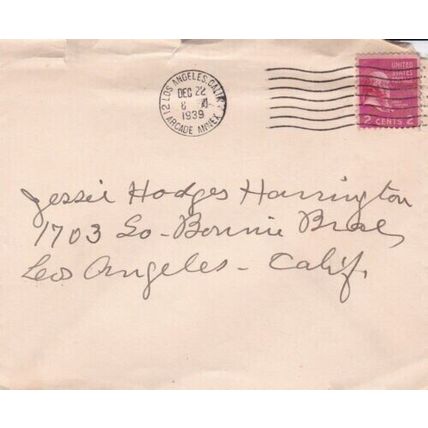 LOS ANGELES, CALIF.
DEC 22
1939
ARCADE ANNEX
UNITED
STATES
2 CENTS 2
Jessie Hodges Harrington
1703 So - Bonnie Brae,
Los Angeles - Calif.